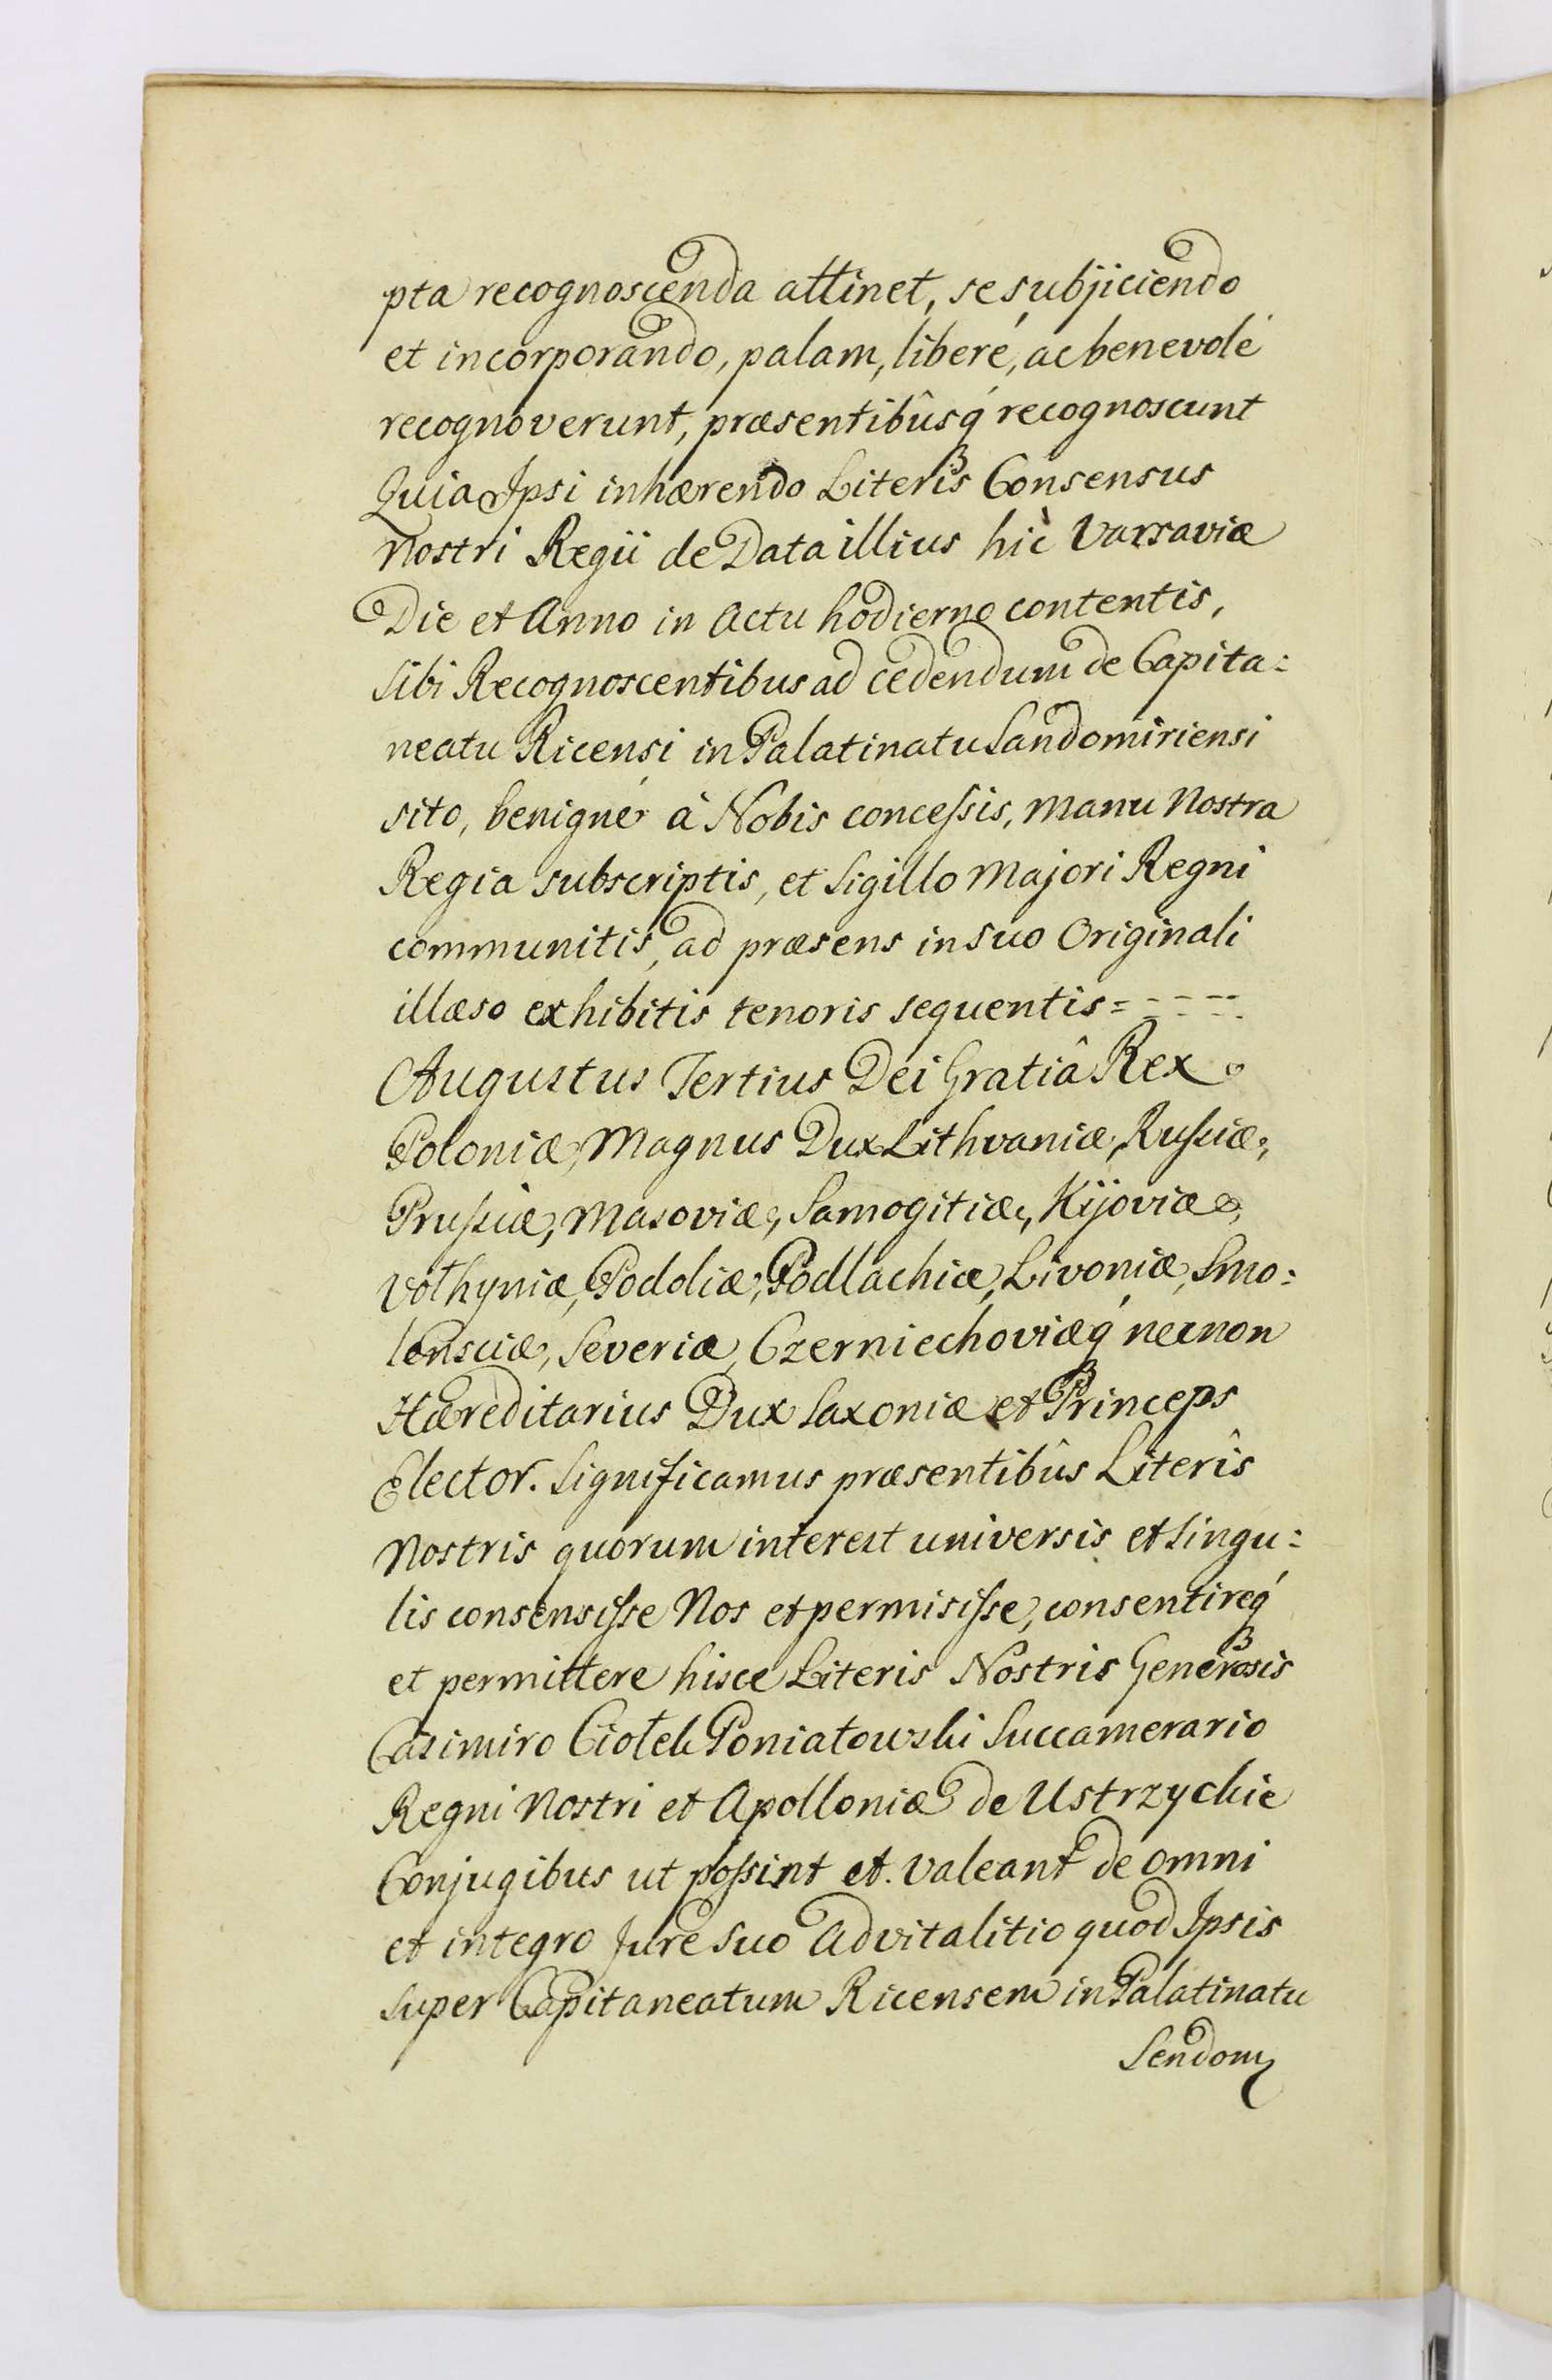 pta recognoscenda attinet, se subjiciendo
et incorporando, palam, liberé, ac benevolé
recognoverunt, præsentibûsq́ recognoscunt
Quia Ipsi inhærendo Literis Consensus
Nostri Regii de Data illius hic Varsaviæ
Die et Anno in Actu hodierno contentis,
sibi Recognoscentibus ad cedendum de Capita:
neatu Ricensi in Palatinatu Sandomiriensi
sito, benigné à Nobis concessis, Manu Nostra
Regia subscriptis, et Sigillo Majori Regni
communitis, ad præsens in suo Originali
illæso exhibitis tenoris sequentis=----
Augustus Tertius Dei Gratiâ Rex
Poloniæ, Magnus Dux Lithvaniæ, Russiæ,
Prussiæ, Masoviæ, Samogitiæ, Kijoviæ,
Volhyniæ, Podoliæ, Podlachiæ, Livoniæ, Smo:
lensciæ, Severiæ, Czerniechoviæq́ necnon
Hæreditarius Dux Saxoniæ et Princeps
Elector. Significamus præsentibûs Literîs
Nostris quorum interest universis et singu:
lis consensisse Nos et permisisse, consentireq́
et permittere hisce Literis Nostris Generosis
Casimiro Ciołek Poniatowski Succamerario
Regni Nostri et Apolloniæ de Ustrzyckie
Conjugibus ut possint et valeant de omni
et integro Jure suo Advitalitio quod Ipsis
super Capitaneatum Ricensem in Palatinatu
Sendom